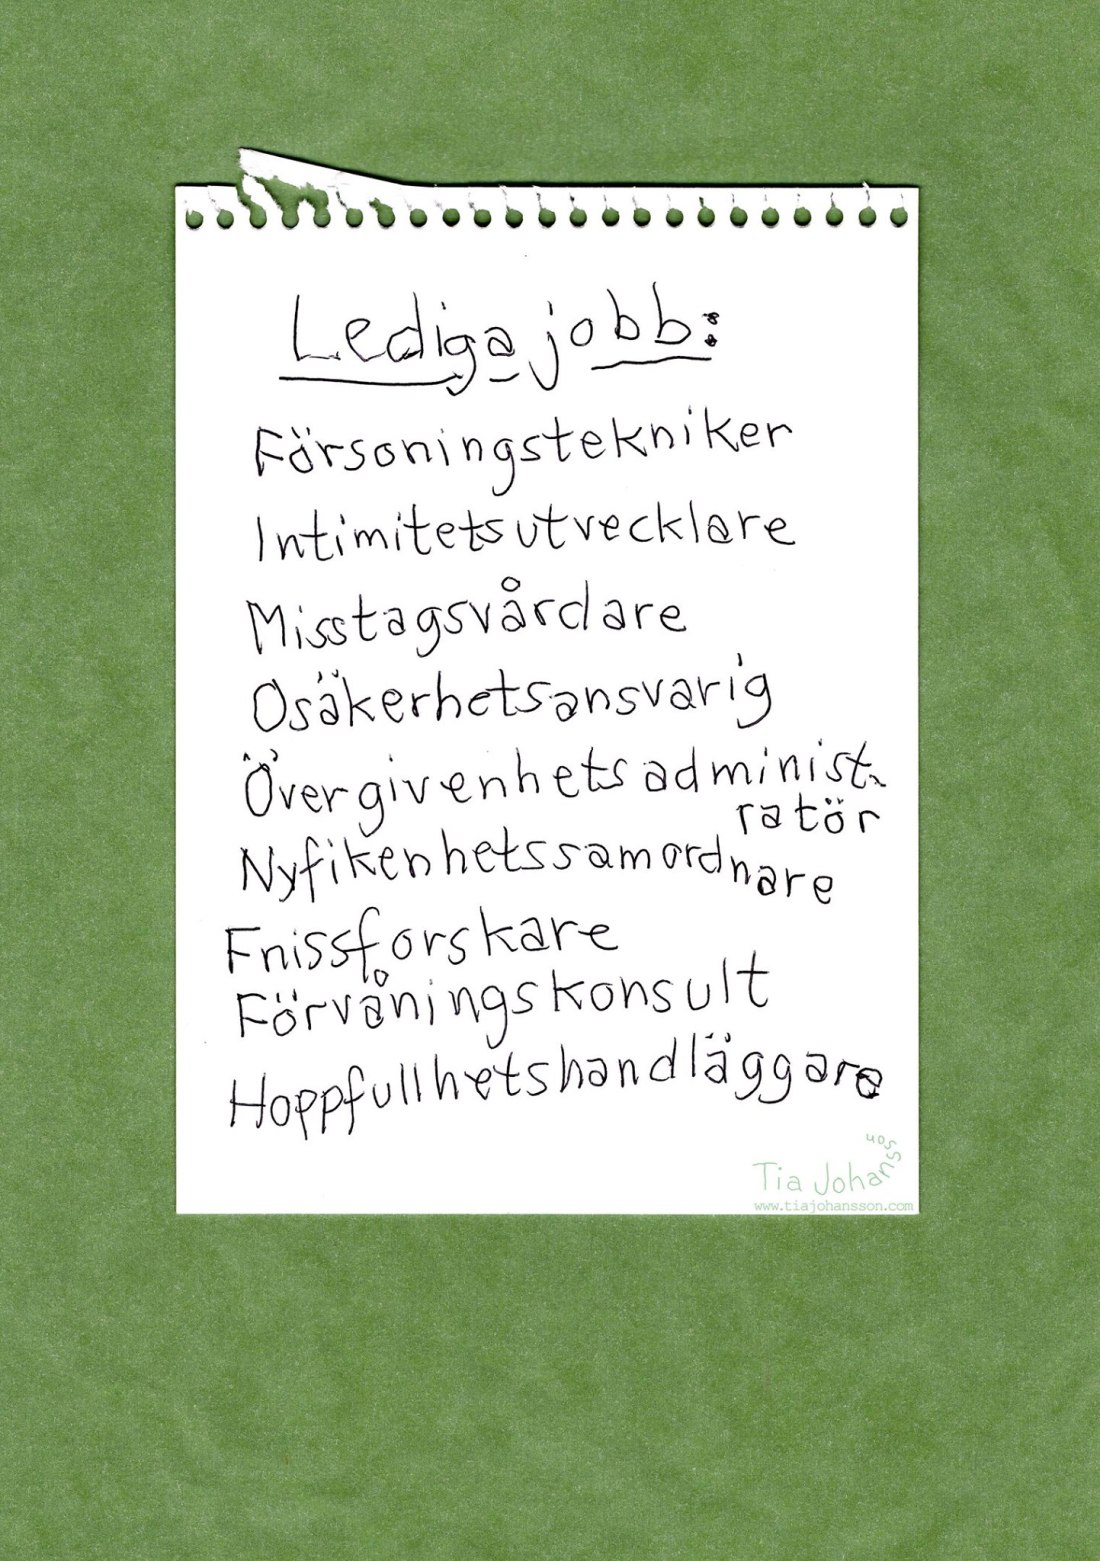 Lediga jobb:
Försoningstekniker
Intimitetsutvecklare
Misstagsvårdare
Osäkerhetsansvarig
Övergivenhetsadminist-
ratör
Nyfikenhetssamordnare
Fnissforskare
Förvåningskonsult
Hoppfullhetshandläggare
Tia Johansson
www.tiajohansson.com